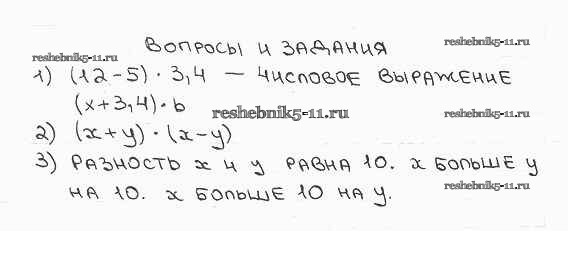 ВОПРОСЫ И ЗАДАНИЯ
reshebnik5-11.ru
reshebnik5-11.ru
1) (12-5) · 3,4 — ЧИСЛОВОЕ ВЫРАЖЕНИЕ
(x+3,4)·b
reshebnik5-11.ru
reshebnik5-11.ru
2) (x+y)·(x-y)
3) РАЗНОСТЬ x И y РАВНА 10. x БОЛЬШЕ y
reshebnik5-11.ru
НА 10. x БОЛЬШЕ 10 НА y.